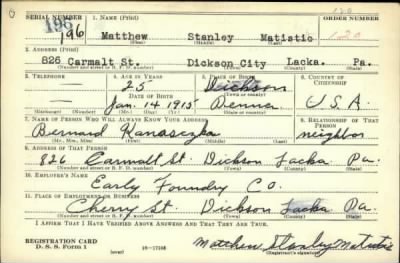 SERIAL NUMBER 1. NAME (Print) ORDER NUMBER
196 120
196 Matthew Stanley Matistic 120
(First) (Middle) (Last)
2. ADDRESS (Print)
826 Carmalt St. Dickson City Lacka. Pa.
(Number and street or R. F. D. number) (Town) (County) (State)
3. TELEPHONE 4. AGE IN YEARS 5. PLACE OF BIRTH 6. COUNTRY OF CITIZENSHIP
25 Dickson
DATE OF BIRTH (Town or county)
Jan. 14 1915 Penna. U.S.A.
(Exchange) (Number) (Mo.) (Day) (Yr.) (State or country)
7. NAME OF PERSON WHO WILL ALWAYS KNOW YOUR ADDRESS 8. RELATIONSHIP OF THAT PERSON
Bernard neighbor
(Mr., Mrs., Miss) (First) (Middle) (Last)
9. ADDRESS OF THAT PERSON
826 Carmalt St. Dickson Lacka Pa.
(Number and street or R. F. D. number) (Town) (County) (State)
10. EMPLOYER'S NAME
Early Foundry Co.
11. PLACE OF EMPLOYMENT OR BUSINESS
Cherry St. Dickson Lacka Pa.
(Number and street or R. F. D. number) (Town) (County) (State)
I AFFIRM THAT I HAVE VERIFIED ABOVE ANSWERS AND THAT THEY ARE TRUE.
REGISTRATION CARD
D. S. S. Form 1 (over) Matthew Stanley Matistic
(Registrant's signature)